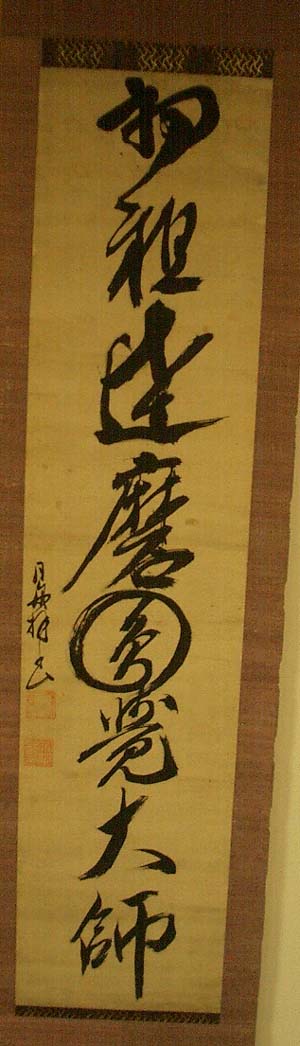 初祖達磨圓覺大師
月舟拜書